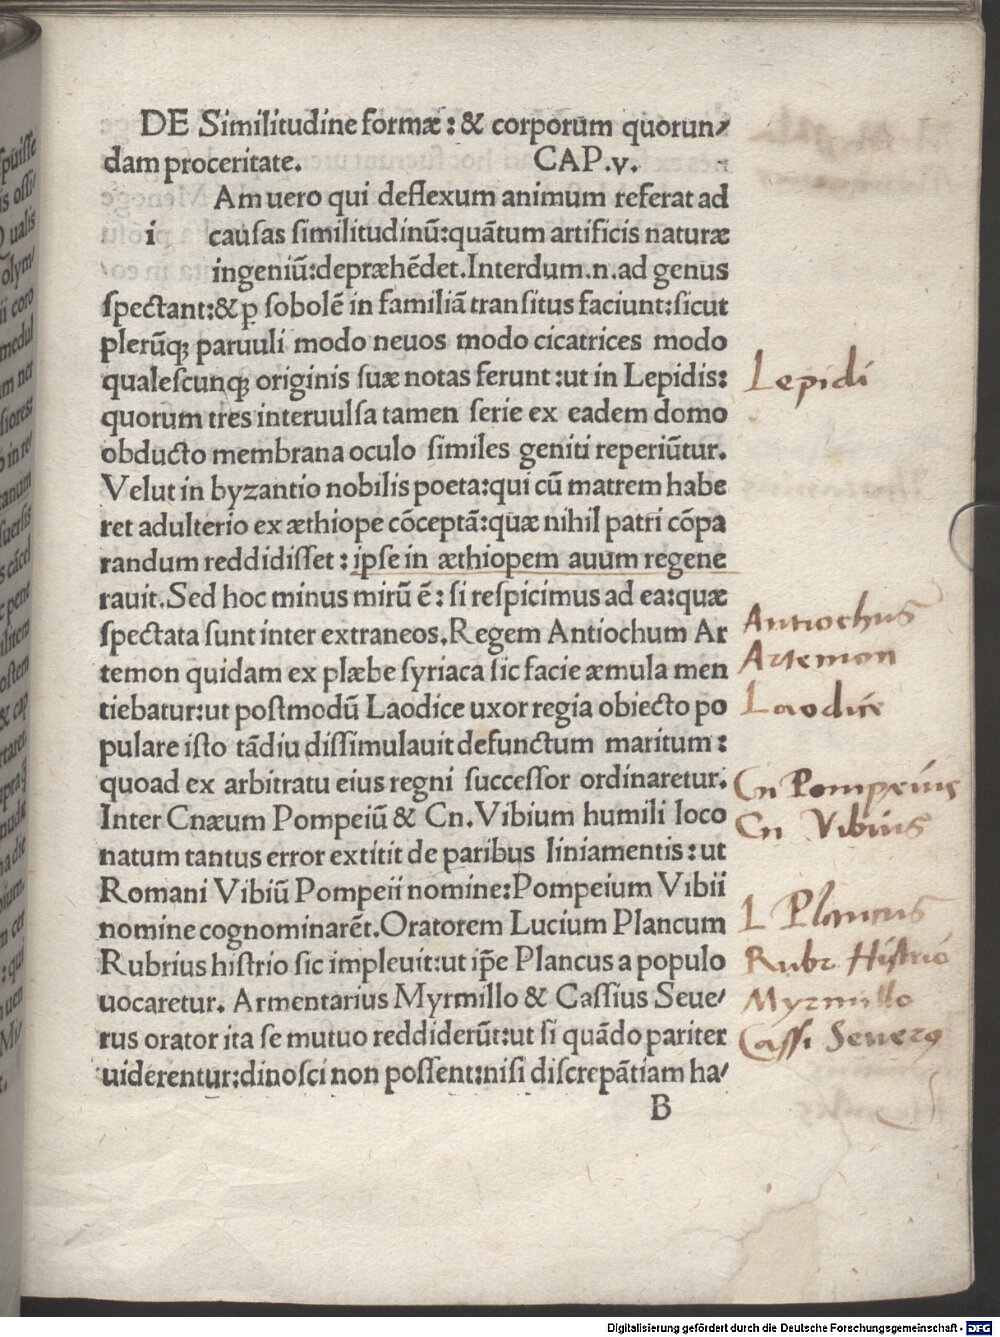 DE Similitudine formæ: & corporum quorun/
dam proceritate. CAP.v.
Am uero qui deflexum animum referat ad
i causas similitudinū:quātum artificis naturæ
ingeniū:depræhēdet.Interdum.n.ad genus
spectant:&ꝑ sobolē in familiā transitus faciunt:sicut
plerūqꝫ paruuli modo neuos modo cicatrices modo
qualescunqꝫ originis suæ notas ferunt:ut in Lepidis:
quorum tres interuulsa tamen serie ex eadem domo
obducto membrana oculo similes geniti reperiūtur.
Velut in byzantio nobilis poeta:qui cū matrem habe
ret adulterio ex æthiope cōceptā:quæ nihil patri cōpa
randum reddidisset:ipse in æthiopem auum regene
rauit.Sed hoc minus mirū ē:si respicimus ad ea:quæ
spectata sunt inter extraneos.Regem Antiochum Ar
temon quidam ex plæbe syriaca sic facie æmula men
tiebatur:ut postmodū Laodice uxor regia obiecto po
pulare isto tādiu dissimulauit defunctum maritum:
quoad ex arbitratu eius regni successor ordinaretur.
Inter Cnæum Pompeiū & Cn.Vibium humili loco
natum tantus error extitit de paribus liniamentis:ut
Romani Vibiū Pompeii nomine:Pompeium Vibii
nomine cognominarēt.Oratorem Lucium Plancum
Rubrius histrio sic impleuit:ut ip̄e Plancus a populo
uocaretur. Armentarius Myrmillo & Cassius Seue/
rus orator ita se mutuo reddiderūt:ut si quādo pariter
uiderentur:dinosci non possent:nisi discrepātiam ha/
B
Lepidi
Antiochus
Artemon
Laodice
Cn Pompeius
Cn Vibius
L Plancus
Rubr Histrio
Myrmillo
Cassi Seuerꝰ
Digitalisierung gefördert durch die Deutsche Forschungsgemeinschaft - DFG